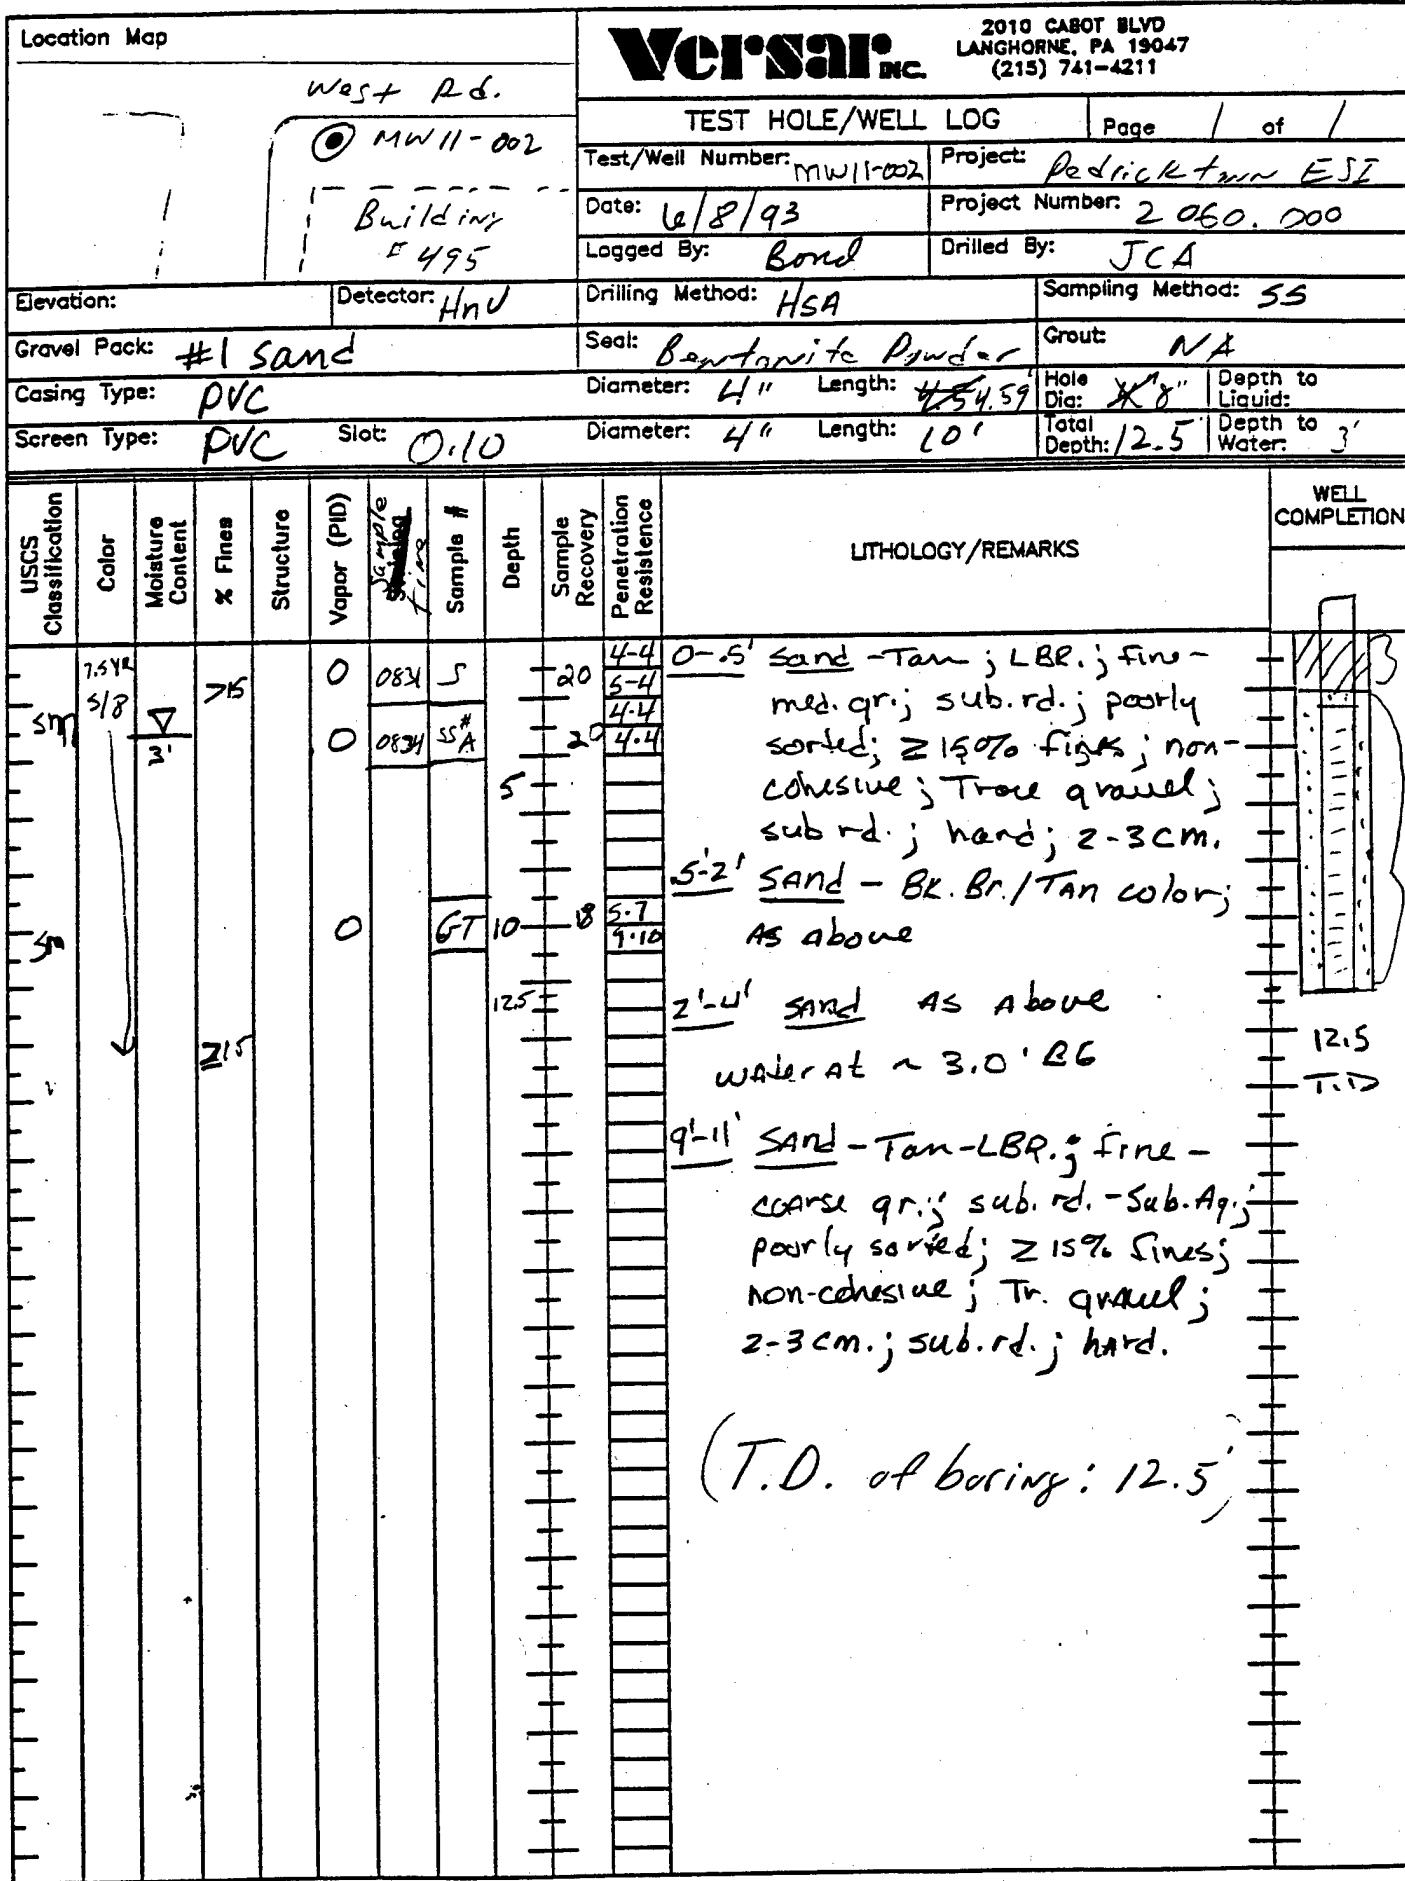 Location Map
West Rd.
MW11-002
Building
# 495
Versar INC.
2010 CABOT BLVD
LANGHORNE, PA 19047
(215) 741-4211
TEST HOLE/WELL LOG
Page 1 of 1
Test/Well Number: MW11-002
Project: Pedricktown ESI
Date: 6/8/93
Project Number: 2060.000
Logged By: Bond
Drilled By: JCA
Elevation:
Detector: HnU
Drilling Method: HSA
Sampling Method: SS
Gravel Pack: #1 sand
Seal: Bentonite Powder
Grout: NA
Casing Type: PVC
Diameter: 4" Length: 4.59'
Hole Dia: 8"
Depth to Liquid:
Screen Type: PVC Slot: 0.10
Diameter: 4" Length: 10'
Total Depth: 12.5
Depth to Water: 3'
USCS Classification
Color
Moisture Content
% Fines
Structure
Vapor (PID)
Sample Time
Sample #
Depth
Sample Recovery
Penetration Resistence
LITHOLOGY/REMARKS
WELL COMPLETION
7.5YR 5/8
>15
0 0831 S 20 4-4
5-4
sm 3' 0 0834 SS#A 20 4-4
4-4
5
sm 0 GT 10 18 5-7
9-10
12.5
≥15
0-.5' Sand - Tan; LBR.; fine-
med. gr.; sub.rd.; poorly
sorted; ≥ 15% fines; non-
cohesive; Trace gravel;
sub rd.; hard; 2-3 cm.
.5'-2' SAnd - BK. Br./TAN color;
AS above
2'-4' SAnd AS Above
WATer AT ~ 3.0' BG
9'-11' SAnd - Tan-LBR.; fine-
coArse gr.; sub. rd. - Sub. Ag.;
poorly sorted; ≥ 15% fines;
non-cohesive; Tr. grAvel;
2-3 cm.; sub.rd.; hArd.
(T.D. of boring: 12.5')
12.5
T.D